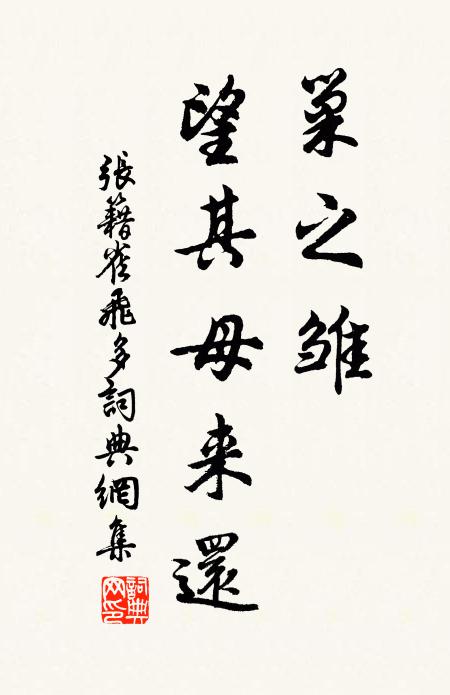 巢之雏
望其母来還
張籍雀飛多詞典網集
詞典
网印